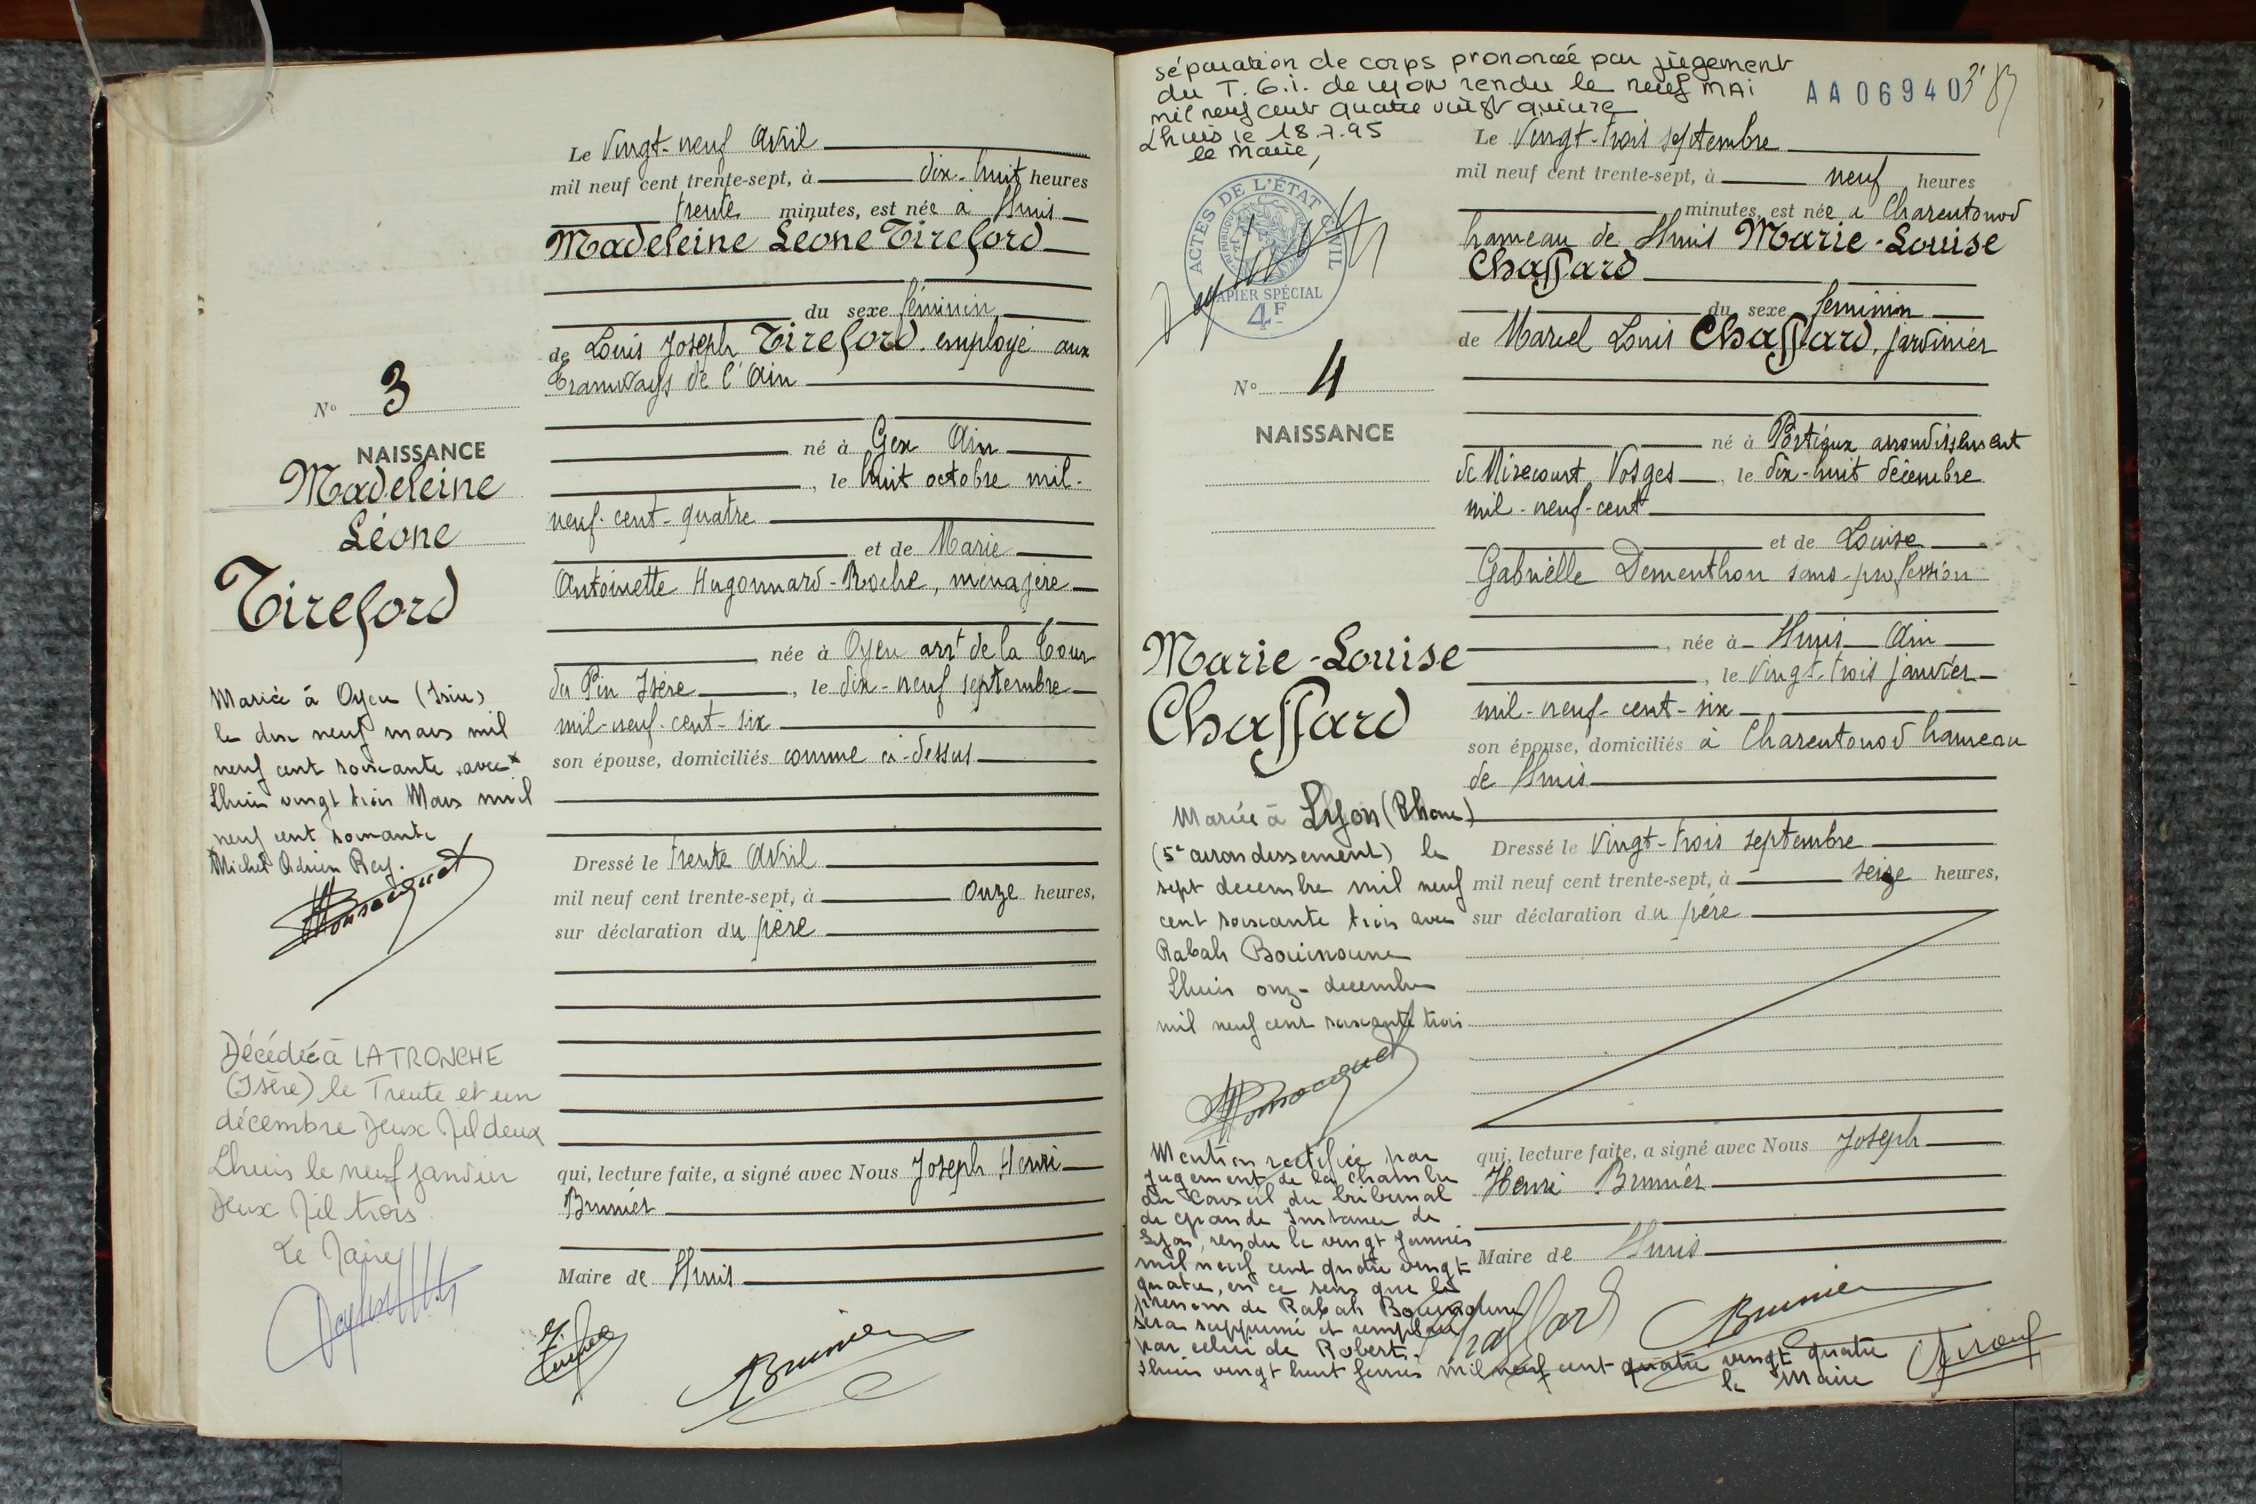 Le Vingt-neuf Avril
mil neuf cent trente-sept, à dix-huit heures
trente minutes, est née à Lhuis
Madeleine Léone Tireford
du sexe féminin
de Louis Joseph Tireford employé aux
Tramways de l'Ain
né à Gex Ain
, le huit octobre mil-
neuf-cent-quatre
et de Marie
Antoinette Hugonnard-Roche, ménagère
née à Oyeu arrt de la Tour
du Pin Isère, le dix-neuf septembre
mil-neuf-cent-six
son épouse, domiciliés comme ci-dessus
Dressé le trente Avril
mil neuf cent trente-sept, à onze heures,
sur déclaration du père
qui, lecture faite, a signé avec Nous Joseph Henri
Brunier
Maire de Lhuis
Brunier
N° 3
NAISSANCE
Madeleine
Léone
Tireford
Mariée à Oyeu (Isère)
le dix neuf mars mil
neuf cent soixante avec x
Lhuis vingt trois Mars mil
neuf cent soixante
x Michel Adrien Rey.
Décédée à LA TRONCHE
(Isère) le Trente et un
décembre Deux Mil deux
Lhuis le neuf janvier
Deux Mil trois.
Le Maire
séparation de corps prononcée par jugement
du T.G.I. de Lyon rendu le neuf MAI
mil neuf cent quatre vingt quinze
Lhuis le 18.7.95
le Maire,
AA06940
ACTES DE L'ÉTAT CIVIL
PAPIER SPÉCIAL
4F
N° 4
NAISSANCE
Marie-Louise
Chaffard
Mariée à Lyon (Rhone)
(5e arrondissement) le
sept decembre mil neuf
cent soixante trois avec
Rabah Bouinoune
Lhuis onze decembre
mil neuf cent soixante trois
Mention rectifiée par
jugement de la chambre
du Conseil du tribunal
de grande Instance de
Lyon, rendu le vingt janvier
mil neuf cent quatre vingt
quatre, en ce sens que le
prenom de Rabah Bouinoune
sera supprimé et remplacé
par celui de Robert.
Lhuis vingt huit fevrier mil neuf cent quatre vingt quatre
le Maire
Le Vingt-trois septembre
mil neuf cent trente-sept, à neuf heures
minutes, est née à Charentonod
hameau de Lhuis Marie-Louise
Chaffard
du sexe féminin
de Marcel Louis Chaffard, jardinier
né à Portieux arrondissement
de Mirecourt, Vosges, le dix-huit décembre
mil-neuf-cent
et de Louise
Gabrielle Dementhon sans-profession
, née à Lhuis Ain
, le vingt-trois janvier
mil-neuf-cent-six
son épouse, domiciliés à Charentonod hameau
de Lhuis
Dressé le vingt-trois septembre
mil neuf cent trente-sept, à seize heures,
sur déclaration du père
qui, lecture faite, a signé avec Nous Joseph
Henri Brunier
Maire de Lhuis
Chaffard
Brunier